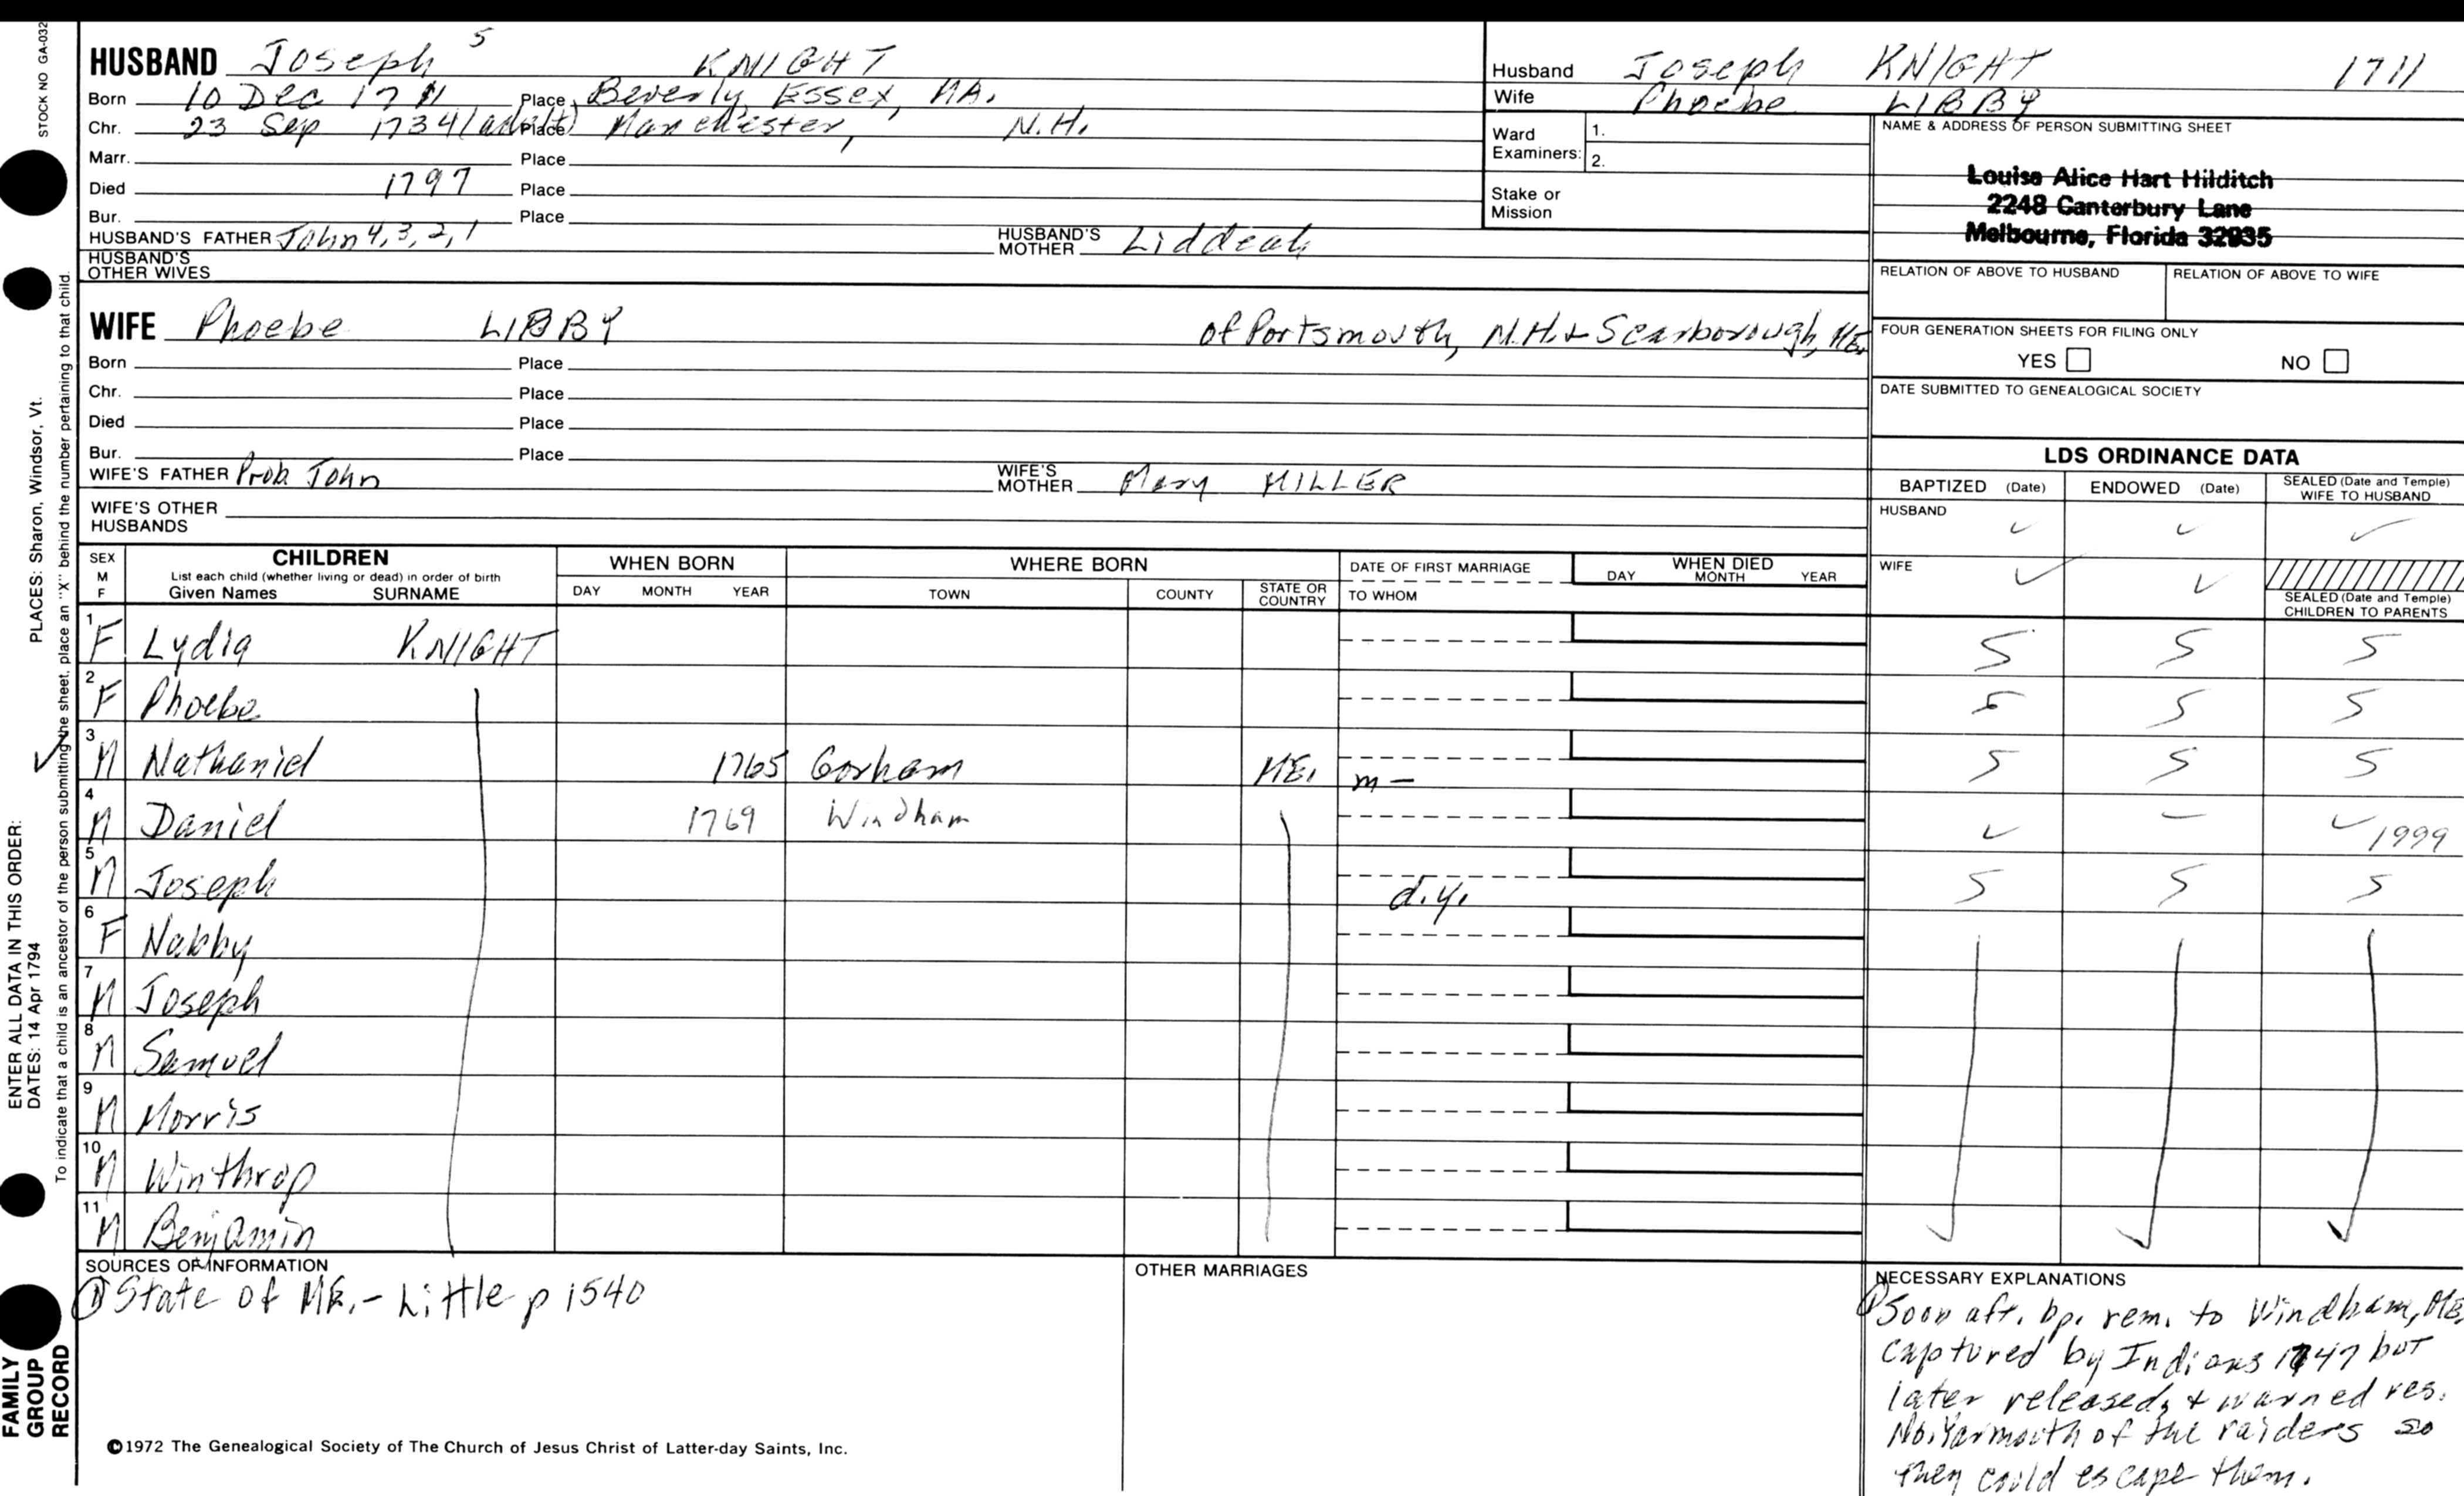 STOCK NO GA-032
PLACES: Sharon, Windsor, Vt.
ENTER ALL DATA IN THIS ORDER:
DATES: 14 Apr 1794
To indicate that a child is an ancestor of the person submitting the sheet, place an "X" behind the number pertaining to that child.
FAMILY GROUP RECORD
HUSBAND Joseph 5 KNIGHT
Born 10 Dec 1711 Place Beverly, Essex, MA.
Chr. 23 Sep 1734 (adult) Place Manchester, N.H.
Marr. Place
Died 1797 Place
Bur. Place
HUSBAND'S FATHER John 4, 3, 2, 1 HUSBAND'S MOTHER Liddeah
HUSBAND'S OTHER WIVES
WIFE Phoebe LIBBY of Portsmouth, N.H. & Scarborough, ME.
Born Place
Chr. Place
Died Place
Bur. Place
WIFE'S FATHER Prob. John WIFE'S MOTHER Mary MILLER
WIFE'S OTHER HUSBANDS
Husband Joseph KNIGHT 1711
Wife Phoebe LIBBY
Ward Examiners: 1.
2.
Stake or Mission
NAME & ADDRESS OF PERSON SUBMITTING SHEET
Louise Alice Hart Hilditch
2248 Canterbury Lane
Melbourne, Florida 32935
RELATION OF ABOVE TO HUSBAND RELATION OF ABOVE TO WIFE
FOUR GENERATION SHEETS FOR FILING ONLY
YES NO
DATE SUBMITTED TO GENEALOGICAL SOCIETY
LDS ORDINANCE DATA
BAPTIZED (Date) ENDOWED (Date) SEALED (Date and Temple) WIFE TO HUSBAND
HUSBAND ✓ ✓ ✓
WIFE ✓ ✓
SEALED (Date and Temple) CHILDREN TO PARENTS
SEX M F CHILDREN WHEN BORN WHERE BORN DATE OF FIRST MARRIAGE WHEN DIED
List each child (whether living or dead) in order of birth
Given Names SURNAME DAY MONTH YEAR TOWN COUNTY STATE OR COUNTRY TO WHOM DAY MONTH YEAR
1 F Lydia KNIGHT S S S
2 F Phoebe S S S
3 M Nathaniel 1765 Gorham ME. m - S S S
4 M Daniel 1769 Windham ✓ — ✓ 1999
5 M Joseph d.y. S S S
6 F Nabby
7 M Joseph
8 M Samuel
9 M Morris
10 M Winthrop
11 M Benjamin
SOURCES OF INFORMATION
① State of ME. - Little p 1540
OTHER MARRIAGES
NECESSARY EXPLANATIONS
① Soon aft. bp. rem. to Windham, ME.
captured by Indians 1747 but
later released, & warned res.
No. Yarmouth of the raiders so
they could escape them.
©1972 The Genealogical Society of The Church of Jesus Christ of Latter-day Saints, Inc.